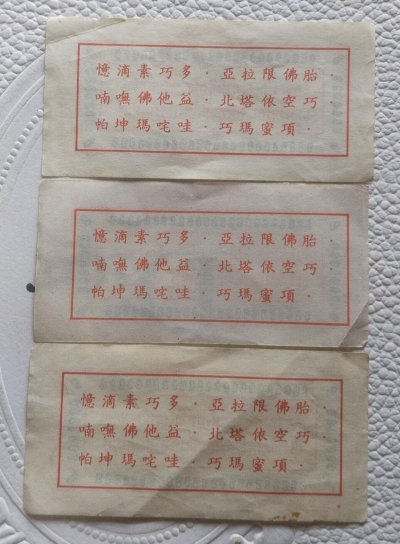 憶滴素巧多・亞拉限佛胎・
喃嘸佛他益・北塔依空巧・
帕坤瑪咤哇・巧瑪蜜項・
憶滴素巧多・亞拉限佛胎・
喃嘸佛他益・北塔依空巧・
帕坤瑪咤哇・巧瑪蜜項・
憶滴素巧多・亞拉限佛胎・
喃嘸佛他益・北塔依空巧・
帕坤瑪咤哇・巧瑪蜜項・